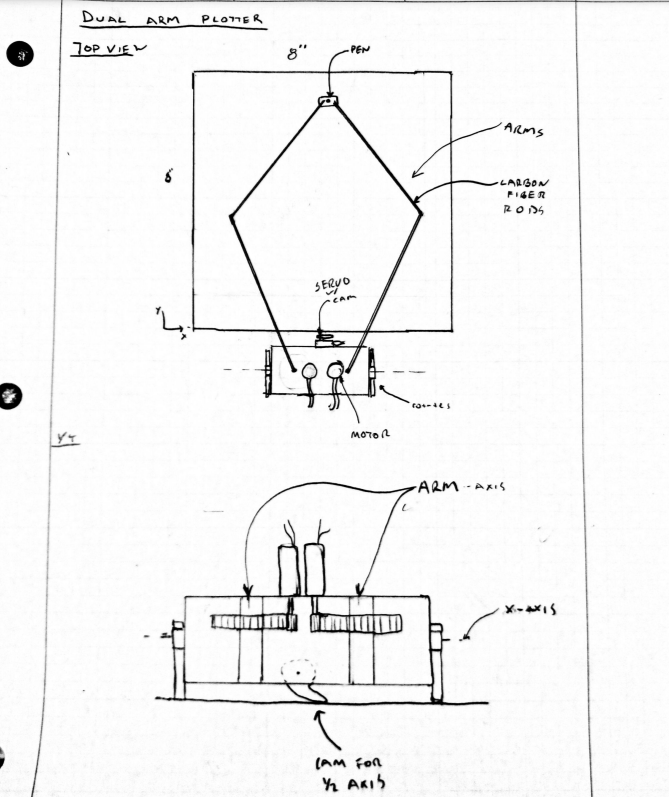 DUAL ARM PLOTTER
TOP VIEW
8"
PEN
ARMS
8
CARBON
FIBER
RODS
SERVO
w/
CAM
Y
X
MOTOR
ARM-AXIS
X-AXIS
CAM FOR
1/2 AXIS